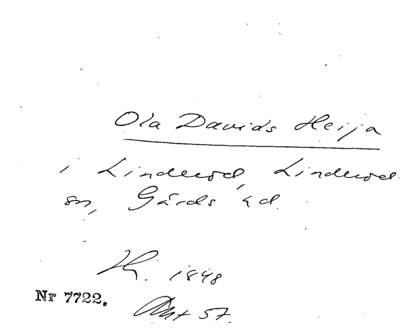 Ola Davids Heija
i Linderod, Linderod
sn, Gärds hd.
1848
Nr 7722.
57.